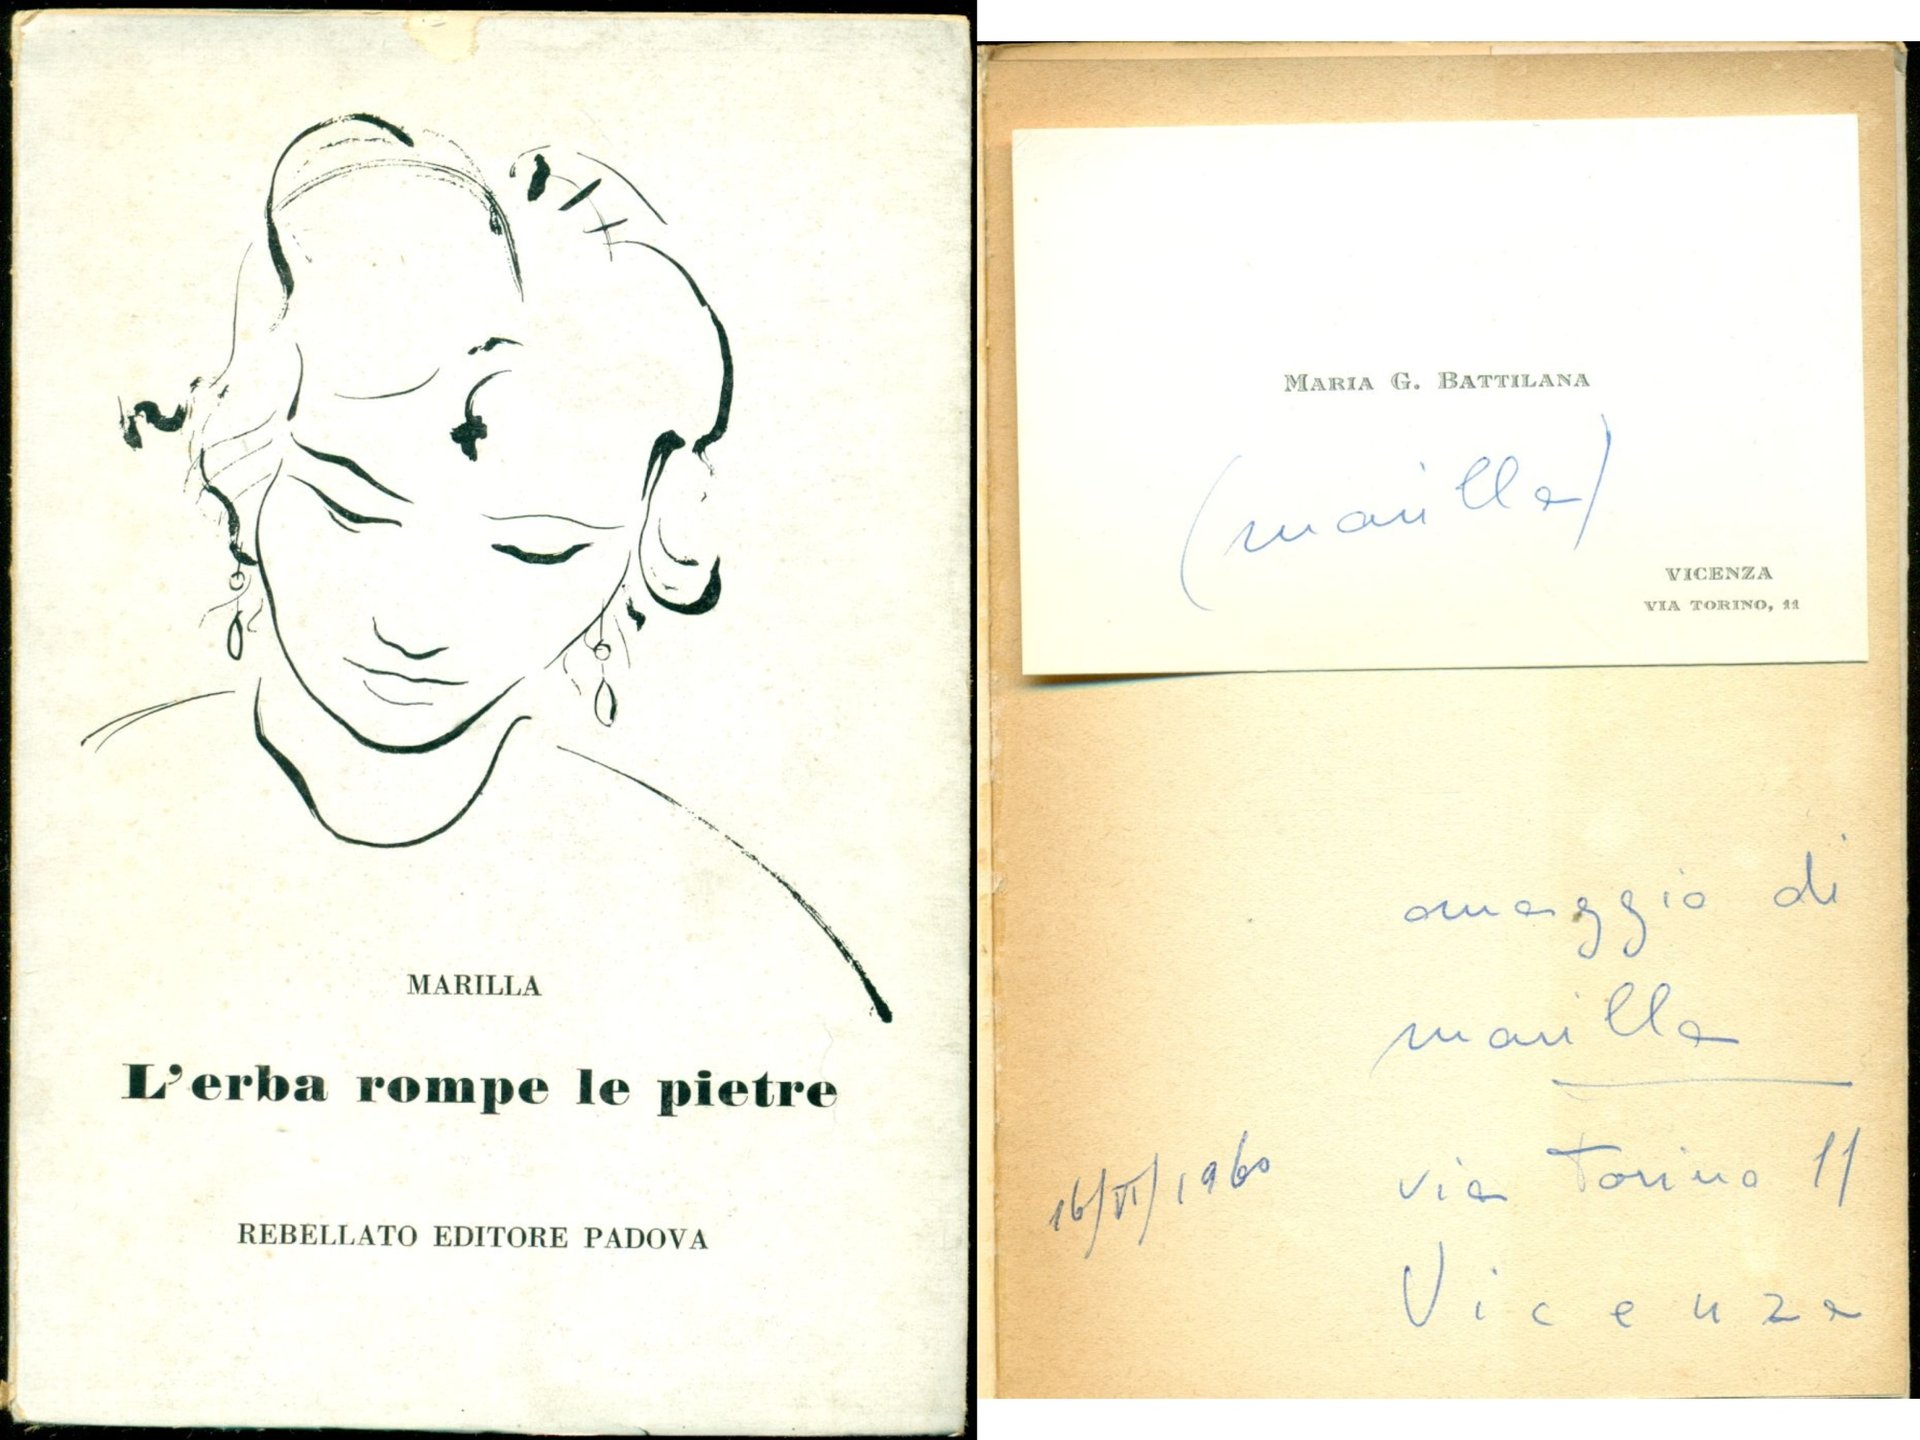 MARILLA
L'erba rompe le pietre
REBELLATO EDITORE PADOVA
MARIA G. BATTILANA
(marilla)
VICENZA
VIA TORINO, 11
omaggio di
marilla
16/VI/1960
via Torino 11
Vicenza